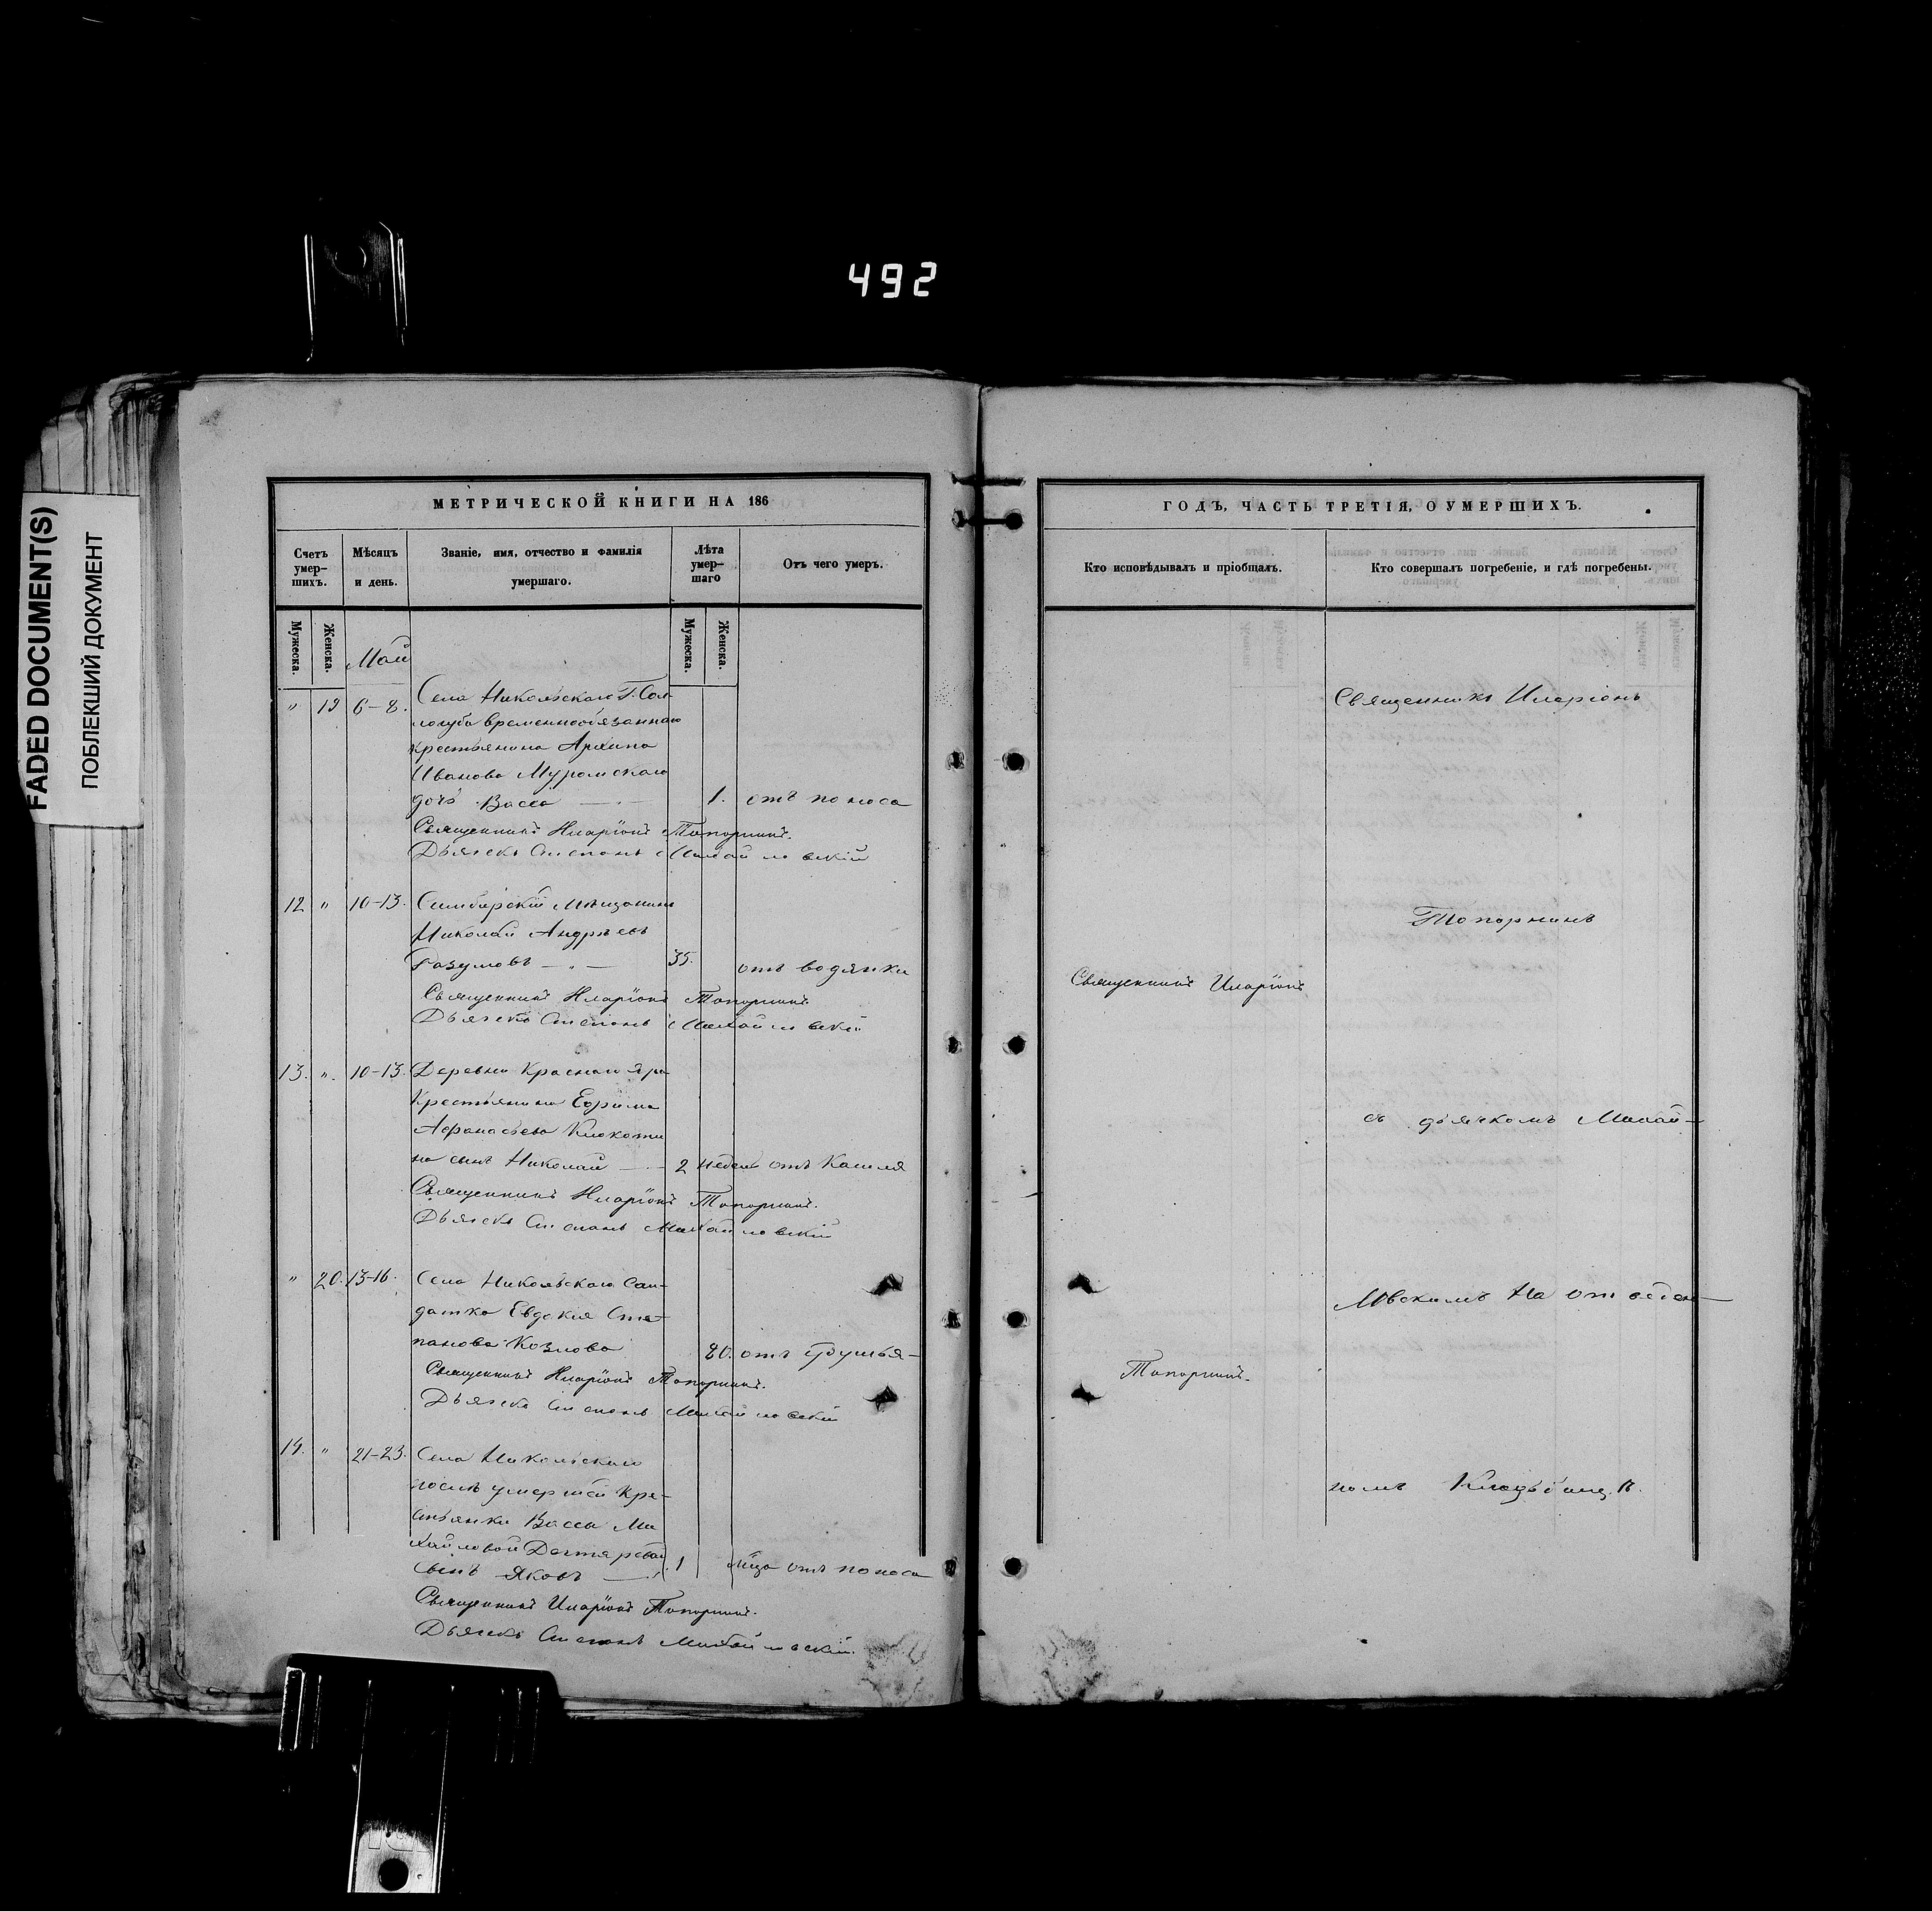 492
FADED DOCUMENT(S)
ПОБЛЕКШИЙ ДОКУМЕНТ
МЕТРИЧЕСКОЙ КНИГИ НА 186
Счетъ умер-шихъ.
Мѣсяцъ и день.
Званіе, имя, отчество и фамилія умершаго.
Лѣта умер-шаго
Отъ чего умеръ.
Мужеска.
Женска.
Май
Мужеска.
Женска.
" 19 6-8. Села Никольскаго Г. Сол-
логуба временнообязаннаго
крестьянина Архипа
Иванова Муромскаго
дочь Васса 1. отъ поноса
Священникъ Иларіонъ Топорнинъ.
Дьячекъ Степанъ Михайловскій
12 " 10-13. Симбирскій мѣщанинъ
Николай Андреевъ
Разумовъ 35. отъ водянки
Священникъ Иларіонъ Топорнинъ
Дьячекъ Степанъ Михайловскій
13. ". 10-13. Деревни Краснаго Яра
Крестьянина Ефрима
Афанасьева
на сынъ Николай 2 недел отъ Кашля
Священникъ Иларіонъ Топорнинъ.
Дьячекъ Степанъ Михайловскій
" 20. 13-16. Села Никольскаго Сол-
датка Евдокия Сте-
панова Козлова 80. отъ удушья
Священникъ Иларіонъ Топорнинъ.
Дьячекъ Степанъ Михайловскій
14. " 21-23. Села Никольскаго
послѣ умершей Кре-
стьянки Вассы Ми
хайловой Дегтяревой
сынъ Яковъ 1 мца отъ поноса
Священникъ Иларіонъ Топорнинъ.
Дьячекъ Степанъ Михайловскій.
ГОДЪ, ЧАСТЬ ТРЕТІЯ, О УМЕРШИХЪ.
Кто исповѣдывалъ и пріобщалъ.
Кто совершалъ погребеніе, и гдѣ погребены.
Священникъ Иларіонъ
Топорнинъ.
Священникъ Иларіонъ
Топорнинъ
съ дьячкомъ Михай-
ловскимъ На отведен-
номъ Кладбищѣ.